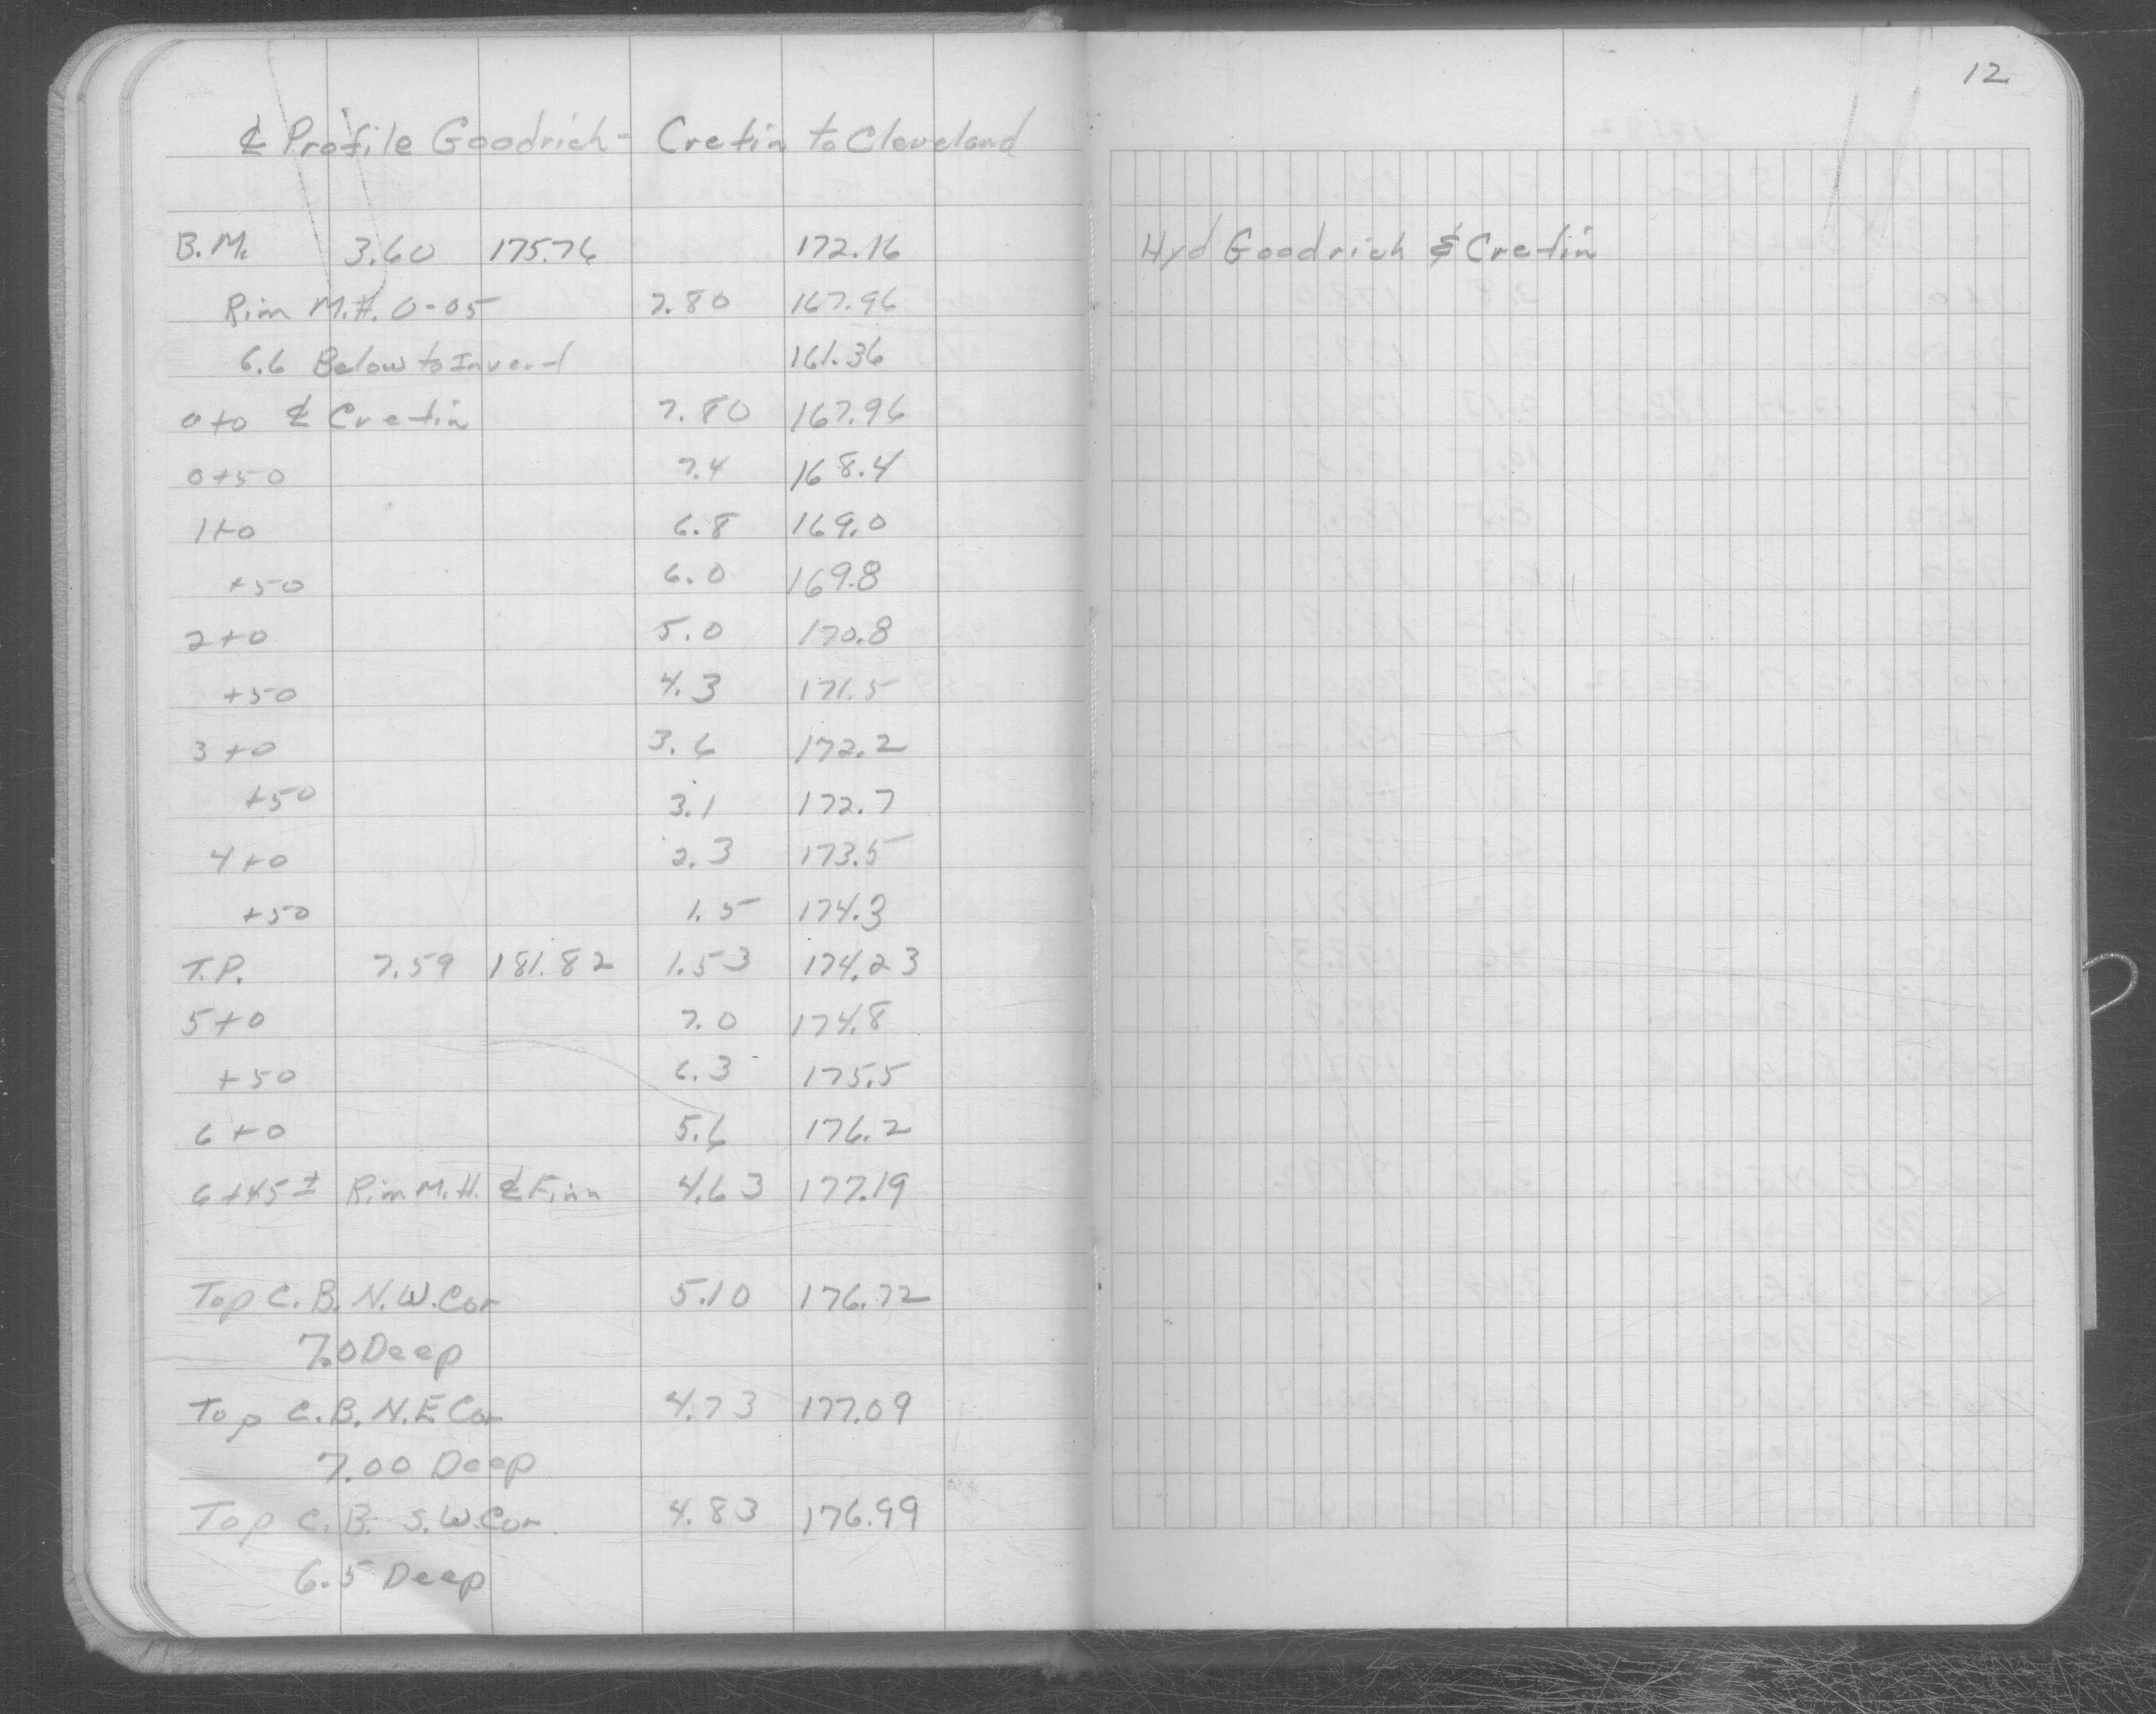 12
℄ Profile Goodrich - Cretin to Cleveland
B.M. 3.60 175.76 172.16 Hyd Goodrich & Cretin
Rim M.H. 0-05 7.80 167.96
6.6 Below to Invert 161.36
0+0 ℄ Cretin 7.80 167.96
0+50 7.4 168.4
1+0 6.8 169.0
+50 6.0 169.8
2+0 5.0 170.8
+50 4.3 171.5
3+0 3.6 172.2
+50 3.1 172.7
4+0 2.3 173.5
+50 1.5 174.3
T.P. 7.59 181.82 1.53 174.23
5+0 7.0 174.8
+50 6.3 175.5
6+0 5.6 176.2
6+45± Rim M.H. ℄ Finn 4.63 177.19
Top C.B. N.W. Cor 5.10 176.72
7.0 Deep
Top C.B. N.E Cor 4.73 177.09
7.00 Deep
Top C.B. S.W. Cor. 4.83 176.99
6.5 Deep